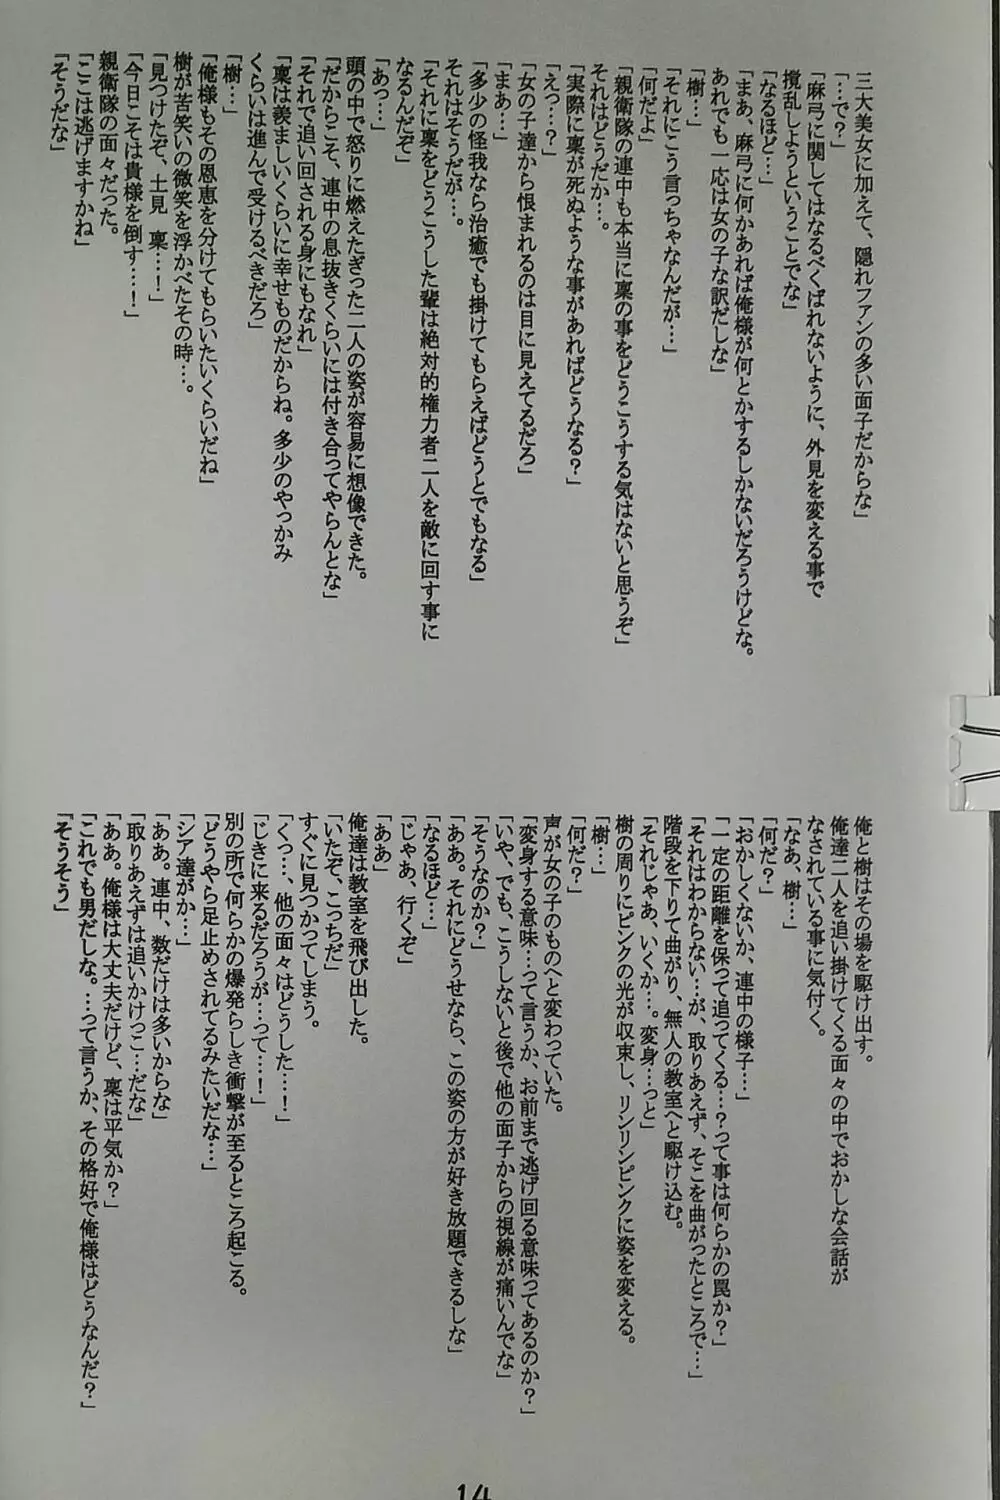 三大美女に加えて、隠れファンの多い面子だからな」
「…で？」
「麻弓に関してはなるべくばれないように、外見を変える事で
撹乱しようということでな」
「なるほど…」
「まあ、麻弓に何かあれば俺様が何とかするしかないだろうけどな。
あれでも一応は女の子な訳だしな」
「樹…」
「それにこう言っちゃなんだが…」
「何だよ」
「親衛隊の連中も本当に稟の事をどうこうする気はないと思うぞ」
それはどうだか…。
「実際に稟が死ぬような事があればどうなる？」
「えっ…？」
「女の子達から恨まれるのは目に見えてるだろ」
「まあ…」
「多少の怪我なら治癒でも掛けてもらえばどうとでもなる」
それはそうだが…。
「それに稟をどうこうした輩は絶対的権力者二人を敵に回す事に
なるんだぞ」
「あっ…」
頭の中で怒りに燃えたぎった二人の姿が容易に想像できた。
「だからこそ、連中の息抜きくらいには付き合ってやらんとな」
「それで追い回される身にもなれ」
「稟は羨ましいくらいに幸せものだからね。多少のやっかみ
くらいは進んで受けるべきだろ」
「樹…」
「俺様もその恩恵を分けてもらいたいくらいだね」
樹が苦笑いの微笑を浮かべたその時…。
「見つけたぞ、土見　稟…！」
「今日こそは貴様を倒す…！」
親衛隊の面々だった。
「ここは逃げますかね」
「そうだな」
俺と樹はその場を駆け出す。
俺達二人を追い掛けてくる面々の中でおかしな会話が
なされている事に気付く。
「なあ、樹…」
「何だ？」
「おかしくないか、連中の様子…」
「一定の距離を保って追ってくる…？って事は何らかの罠か？」
「それはわからない…が、取りあえず、そこを曲がったところで…」
階段を下りて曲がり、無人の教室へと駆け込む。
「それじゃあ、いくか…。変身…っと」
樹の周りにピンクの光が収束し、リンリンピンクに姿を変える。
「樹…」
「何だ？」
声が女の子のものへと変わっていた。
「変身する意味…って言うか、お前まで逃げ回る意味ってあるのか？」
「いや、でも、こうしないと後で他の面子からの視線が痛いんでな」
「そうなのか？」
「ああ。それにどうせなら、この姿の方が好き放題できるしな」
「なるほど…」
「じゃあ、行くぞ」
「ああ」
俺達は教室を飛び出した。
「いたぞ、こっちだ」
すぐに見つかってしまう。
「くっ…、他の面々はどうした…！」
「じきに来るだろうが…って…！」
別の所で何らかの爆発らしき衝撃が至るところ起こる。
「どうやら足止めされてるみたいだな…」
「シア達がか…」
「ああ。連中、数だけは多いからな」
「取りあえずは追いかけっこ…だな」
「ああ。俺様は大丈夫だけど、稟は平気か？」
「これでも男だしな。…って言うか、その格好で俺様はどうなんだ？」
「そうそう」
14